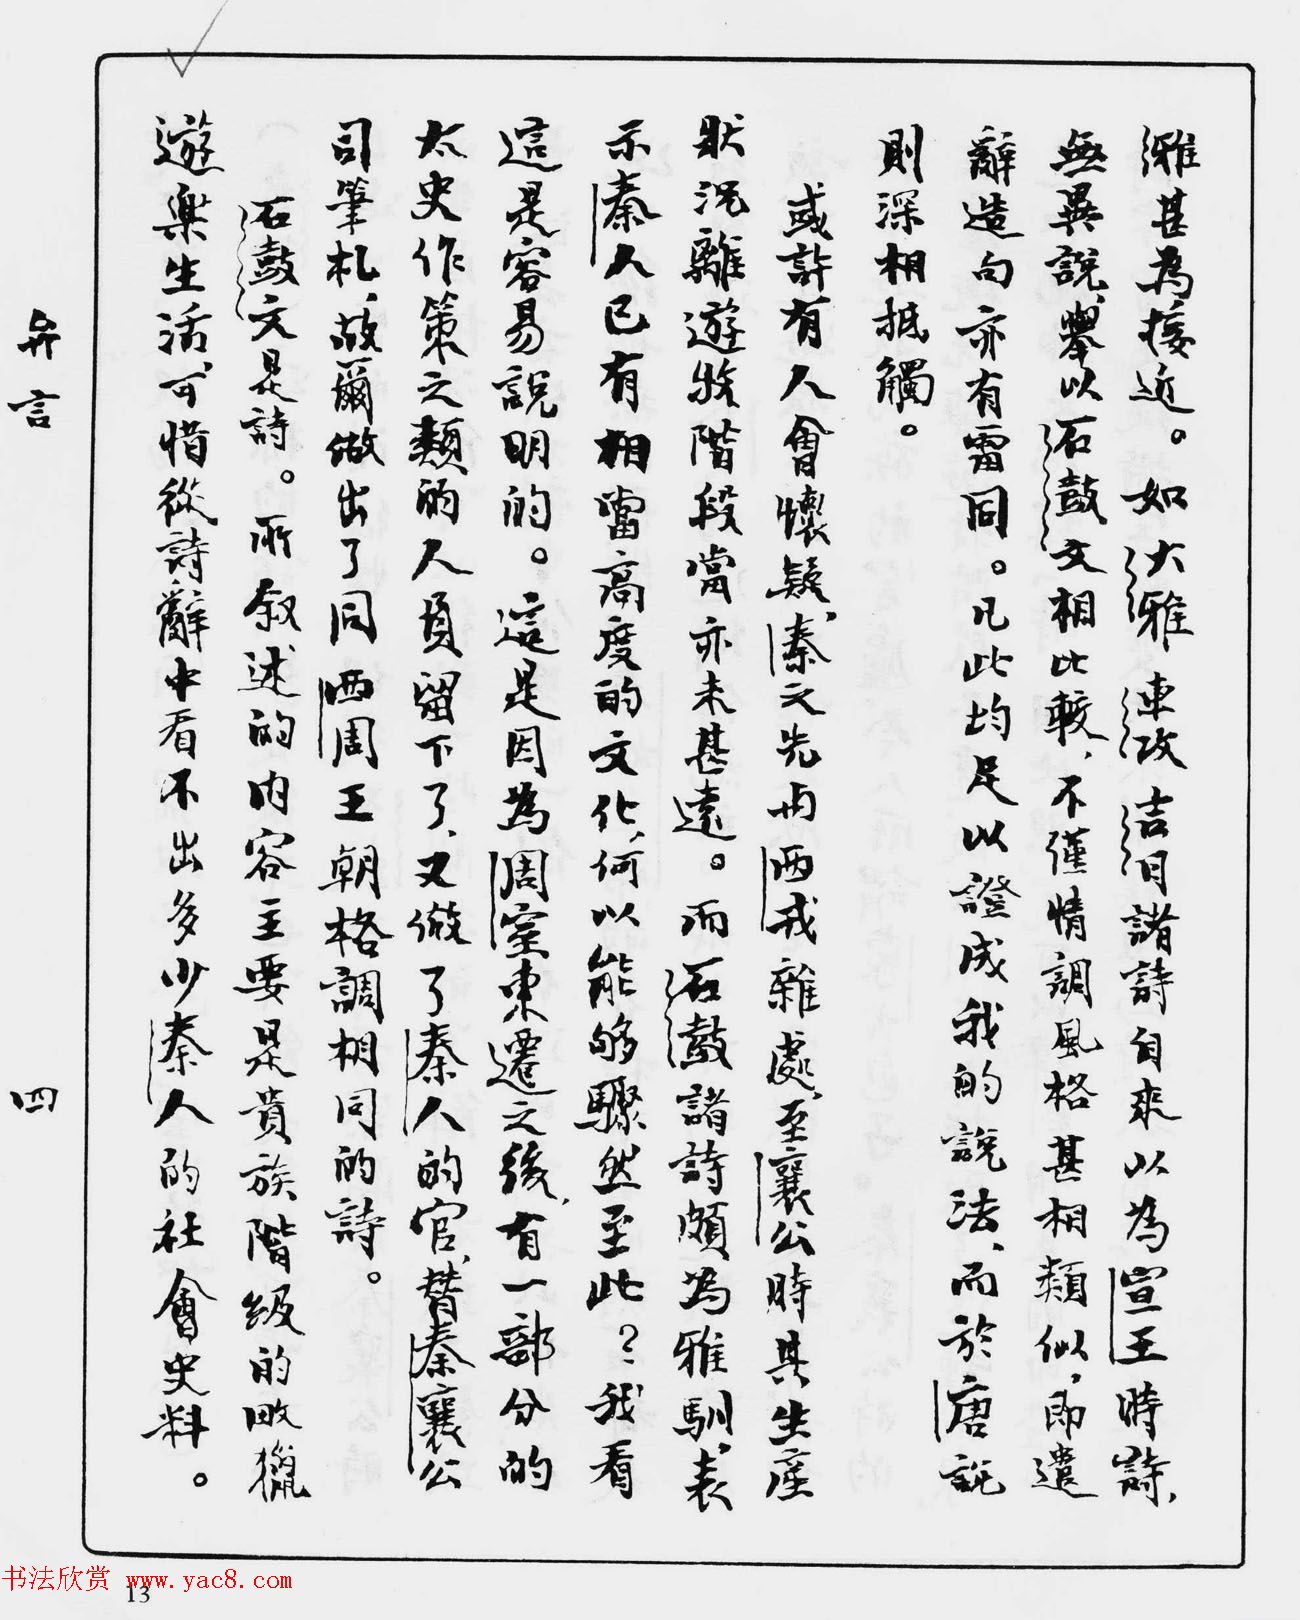 雅甚為接近。如大雅車攻吉日諸詩自來以為宣王時詩，
無異說，舉以石鼓文相比較，不僅情調風格甚相類似，即遣
辭造句亦有雷同。凡此均足以證成我的說法，而於唐說
則深相抵觸。
或許有人會懷疑，秦之先世與西戎雜處，至襄公時其生產
狀況離遊牧階段當亦未甚遠。而石鼓諸詩頗為雅馴，表
示秦人已有相當高度的文化，何以能够驟然至此？我看
這是容易說明的。這是因為周室東遷之後，有一部分的
太史作策之類的人員留下了，又做了秦人的官，替秦襄公
司筆札，故爾做出了同西周王朝格調相同的詩。
石鼓文是詩。所叙述的內容主要是貴族階級的畋獵
遊樂生活，可惜從詩辭中看不出多少秦人的社會史料。
弁言
四
书法欣赏 www.yac8.com
13